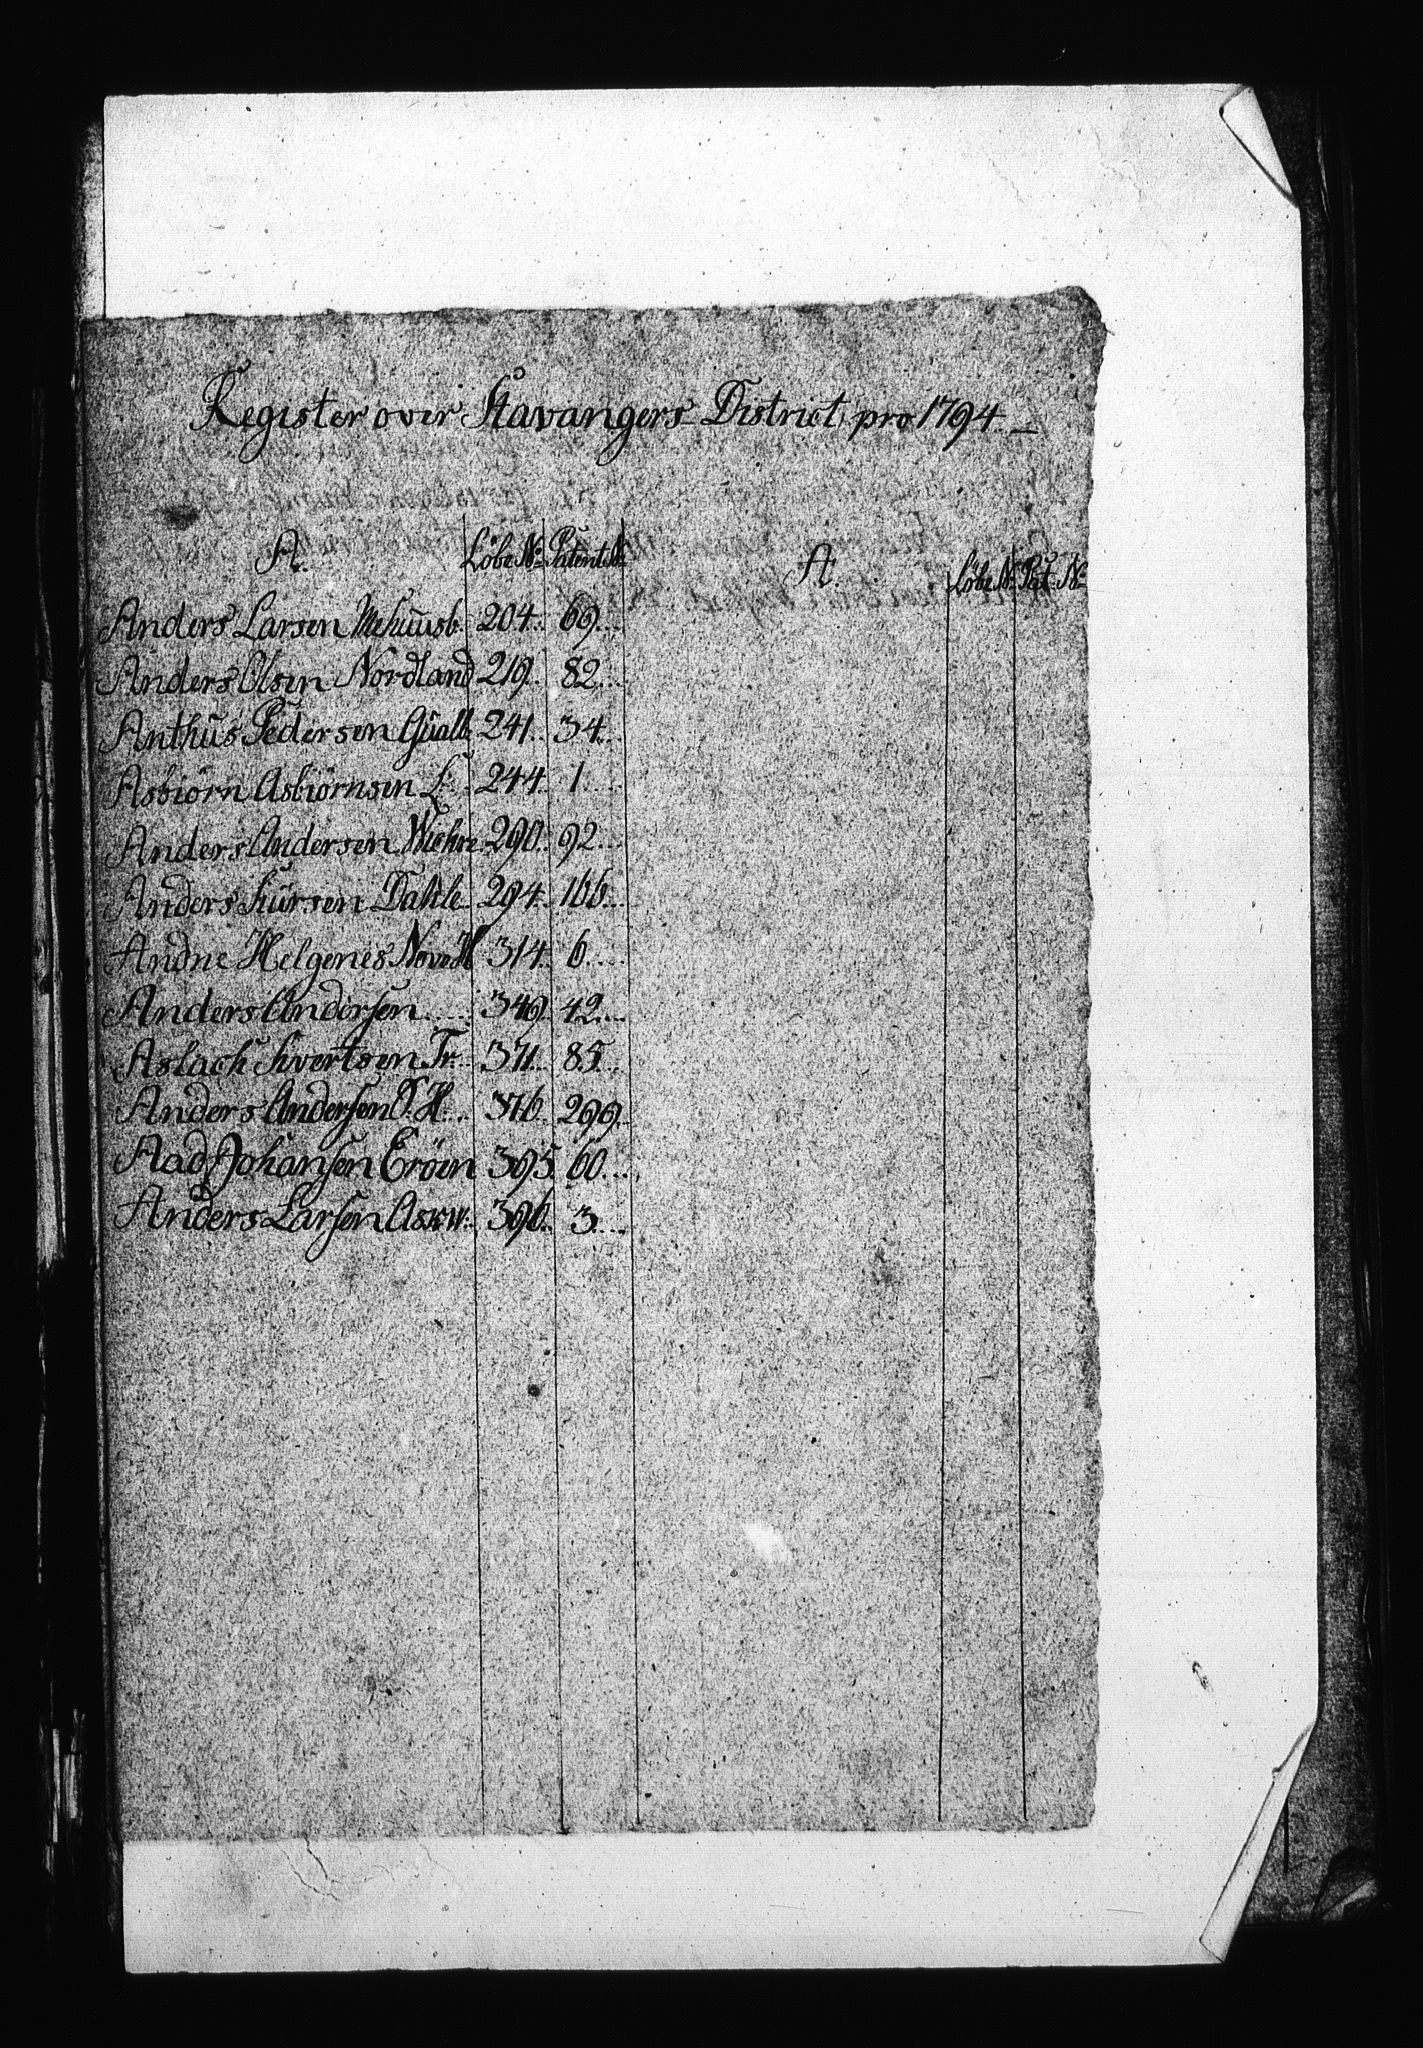 Register over Stavangers District, pro 1794.
A. Löbe No Patent No A. Löbe No Pat. No
Anders Larsen Mehuusb. 204. 69.
Anders Olsen Nordland 219. 82.
Anthus Pedersen Gualb. 241. 34.
Asbiörn Asbiörnsen L. 244. 1.
Anders Andersen Wiehre 290. 92.
Anders Siursen Dahle 294. 166.
Andne Helgenes Nove H 314. 6.
Anders Andersen 349. 42.
Aslach Sivertsen Tr. 371. 85.
Anders Andersen S. H. 376. 299.
Aad Johansen Eröen 395. 60.
Anders Larsen Askw. 396. 3.